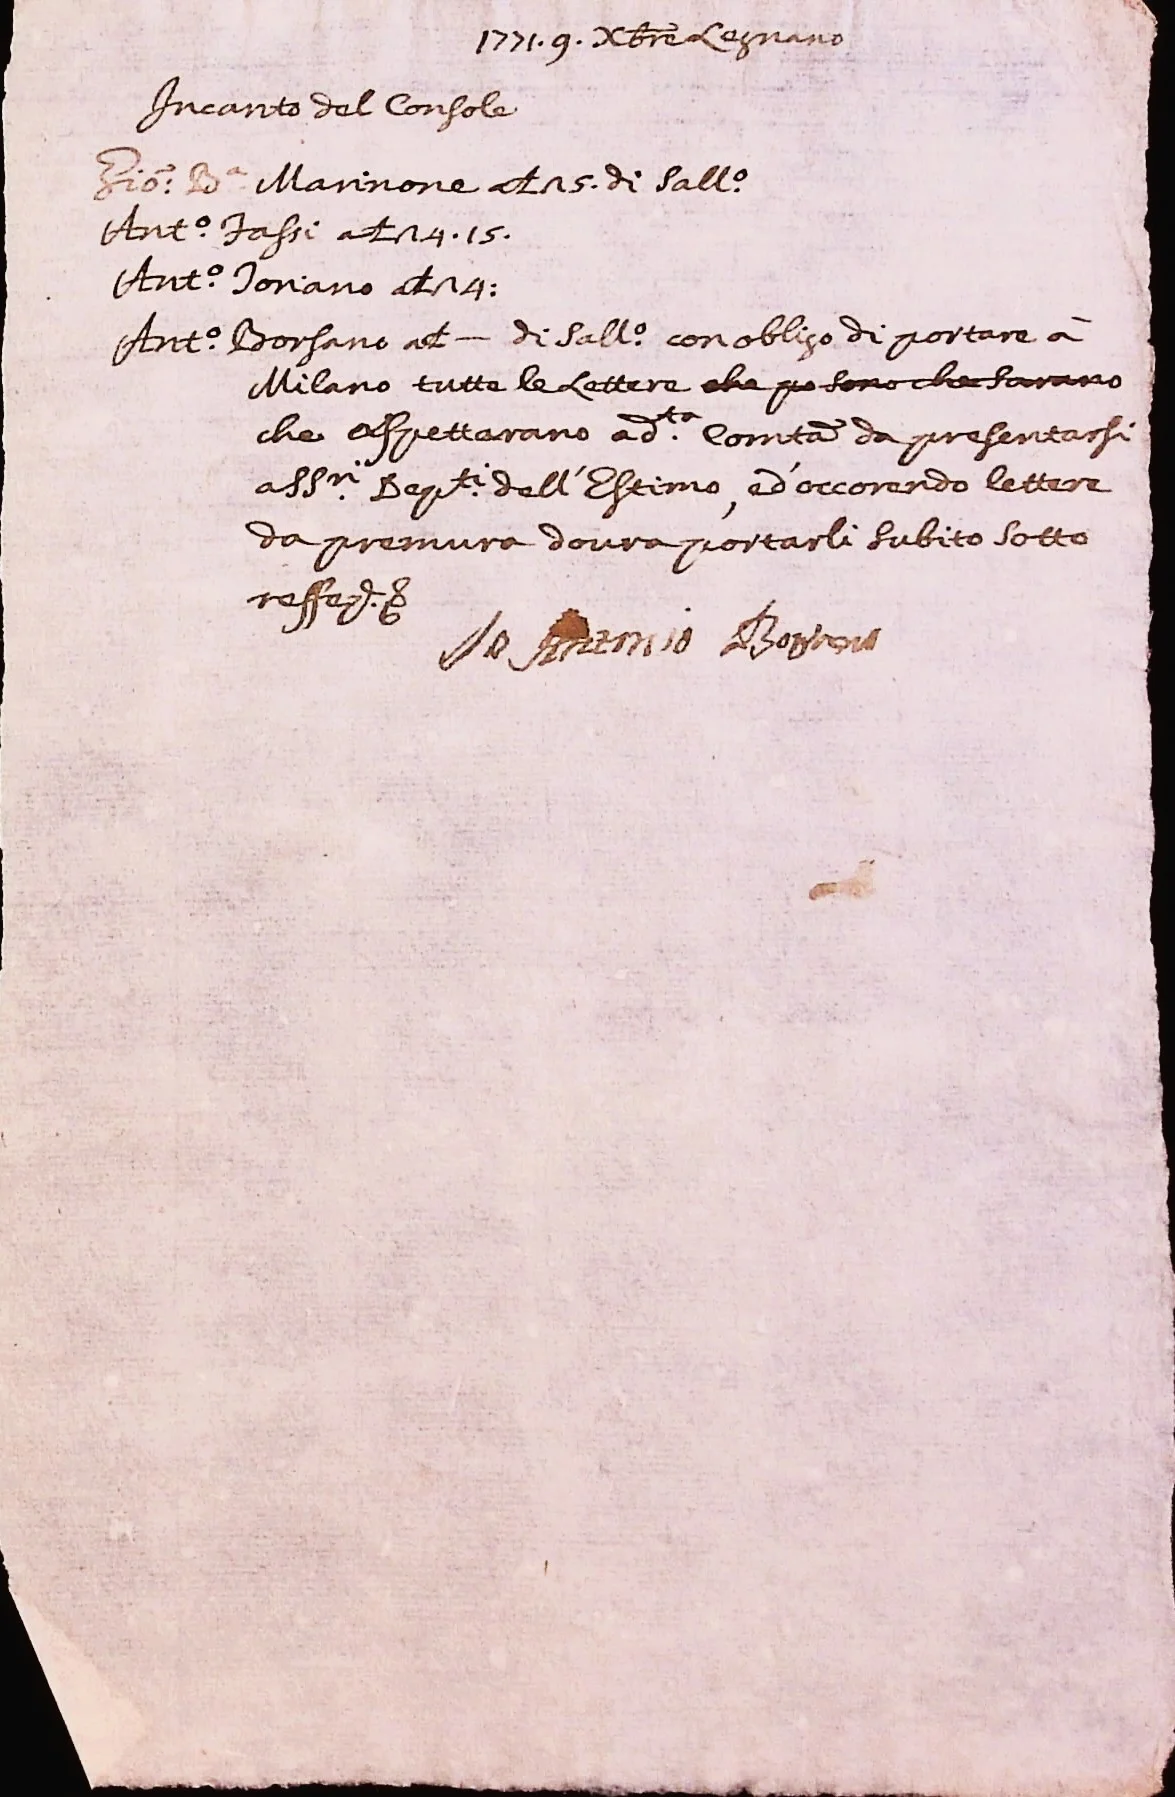 1771. 9. Xbre Legnano
Incanto del Console
Gio: Ba Marinone a £ 15. di Sallo
Anto. Tassi a £ 14. 15.
Anto. Toriano a £ 14:
Anto. Borsano a £ — di Sallo con obligo di portare à
Milano tutte le Lettere che po sono che Sarano
che Aspettarano ad.ta Comtà da presentarsi
a SSri. Depti. dell'Estimo, ed'occorendo lettere
da premura doura portarli Subito Sotto
Io Antonio